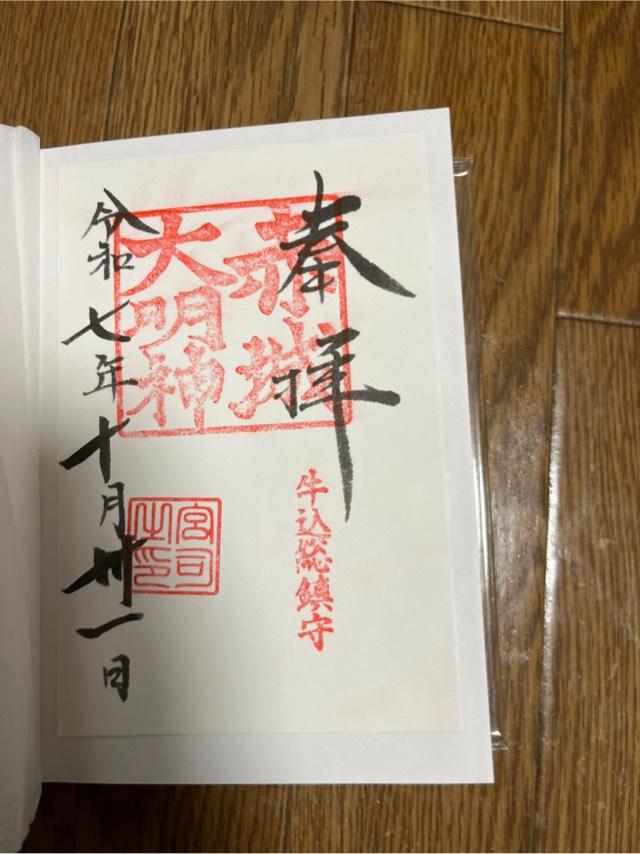 奉拝
赤城
大明神
牛込総鎮守
宮司
之印
令和七年十月卅一日